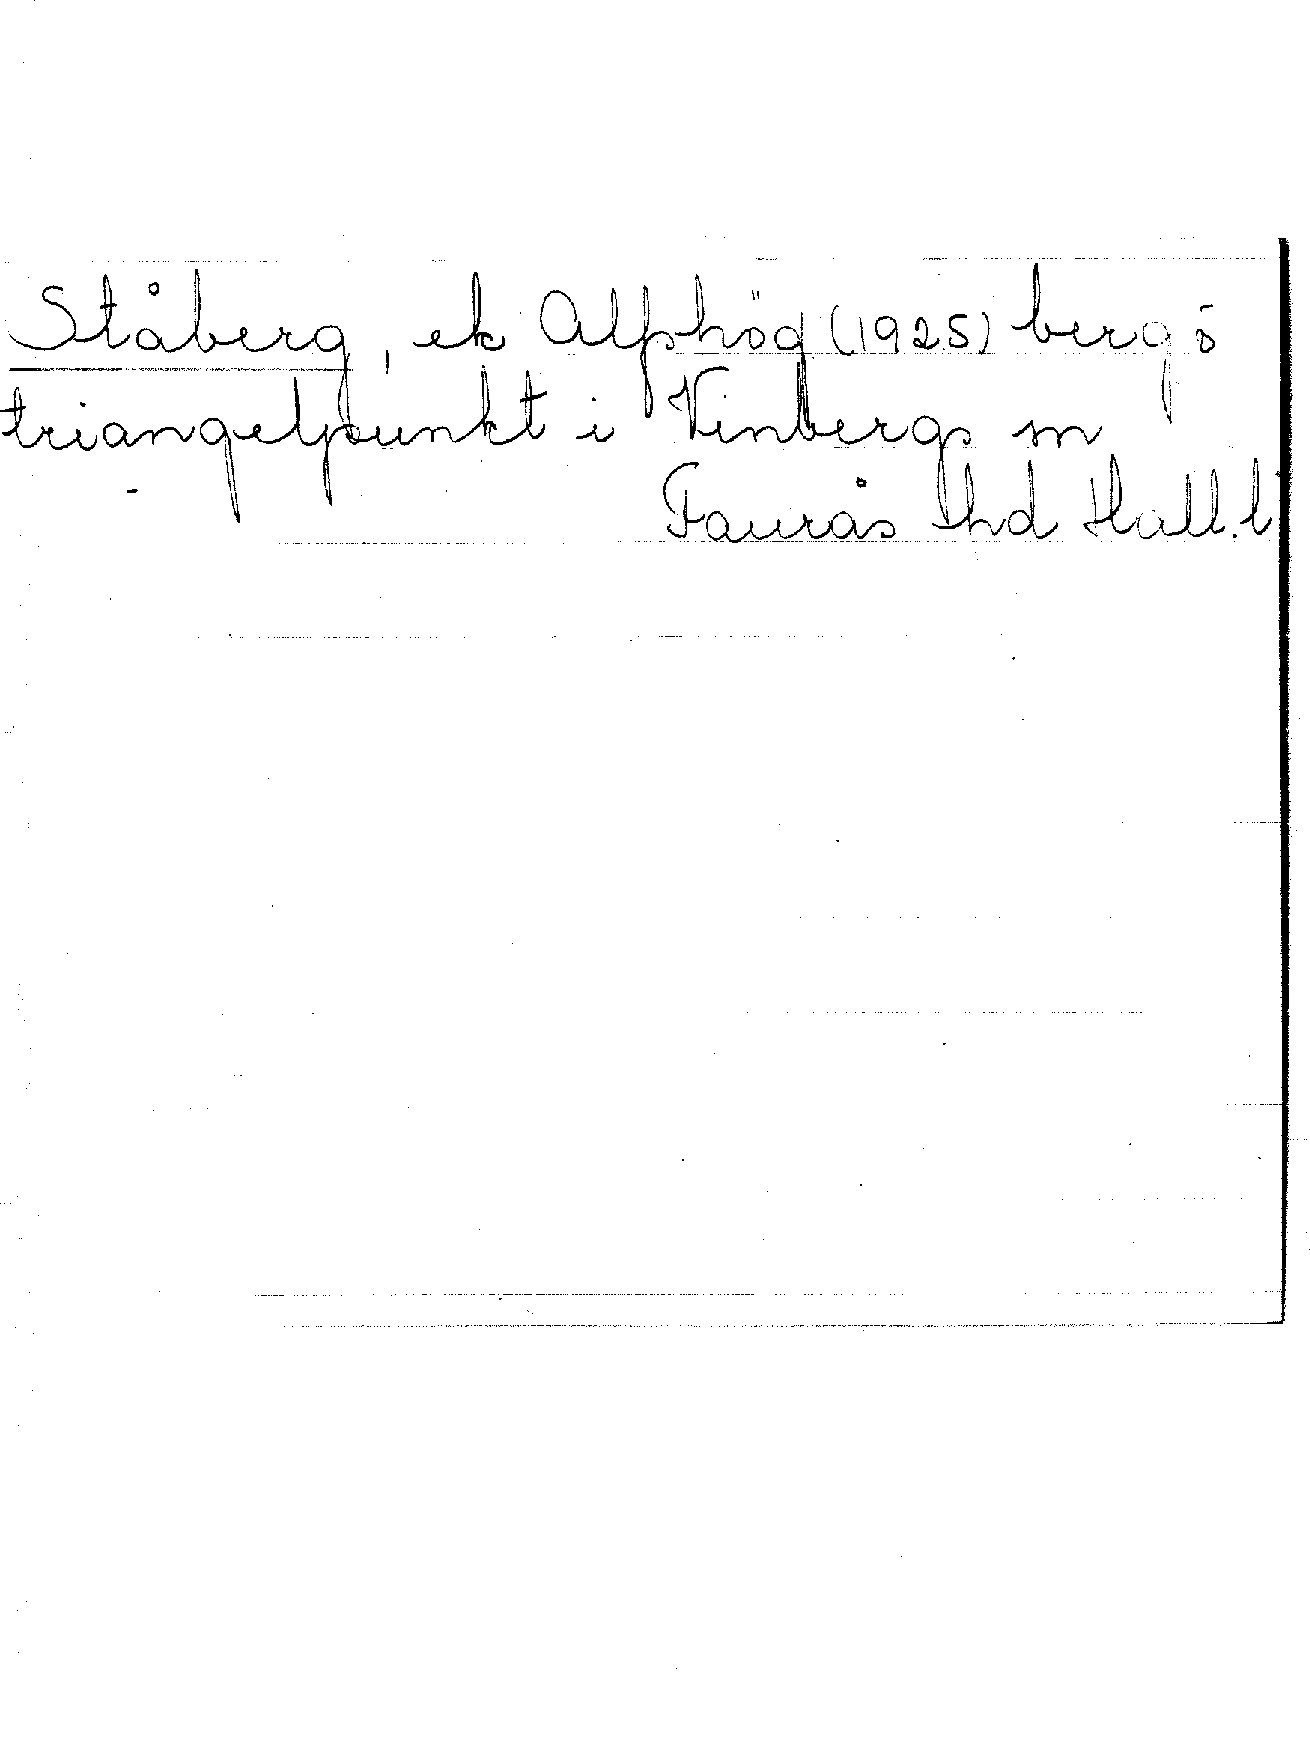 Ståberg, ek Alfshög (1925) berg ö
triangelpunkt i Vinbergs sn
Faurås hd Hall. l